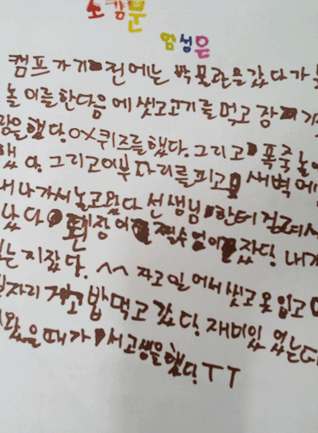 소감문
엄성은
캠프 가기 전에는 박물관을 갔다가
놀이를 한다음에 씻고 고기를 먹고 장기
랑을 했다. OX퀴즈를 했다. 그리고 폭죽놀이
했다. 그리고 이부자리를 피고 새벽에
나가서 놀고 왔다 선생님 한테 걸려서
났다 이 잤다. 내가
는지 잤다. ^^ 자고 일어서 씻고 옷 입고
자리 밥 먹고 갔다. 재미있
왔을 때가 서 고생을 했다. TT